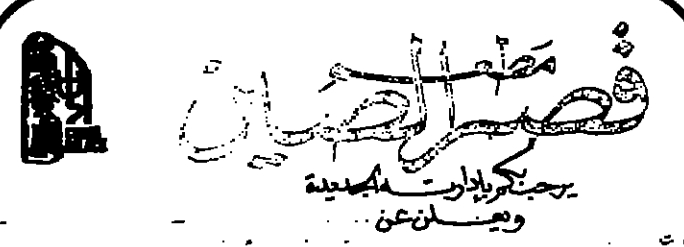 مطعم
قصر الصين
يرحب بكم بإدارته الجديدة
ويعلن عن